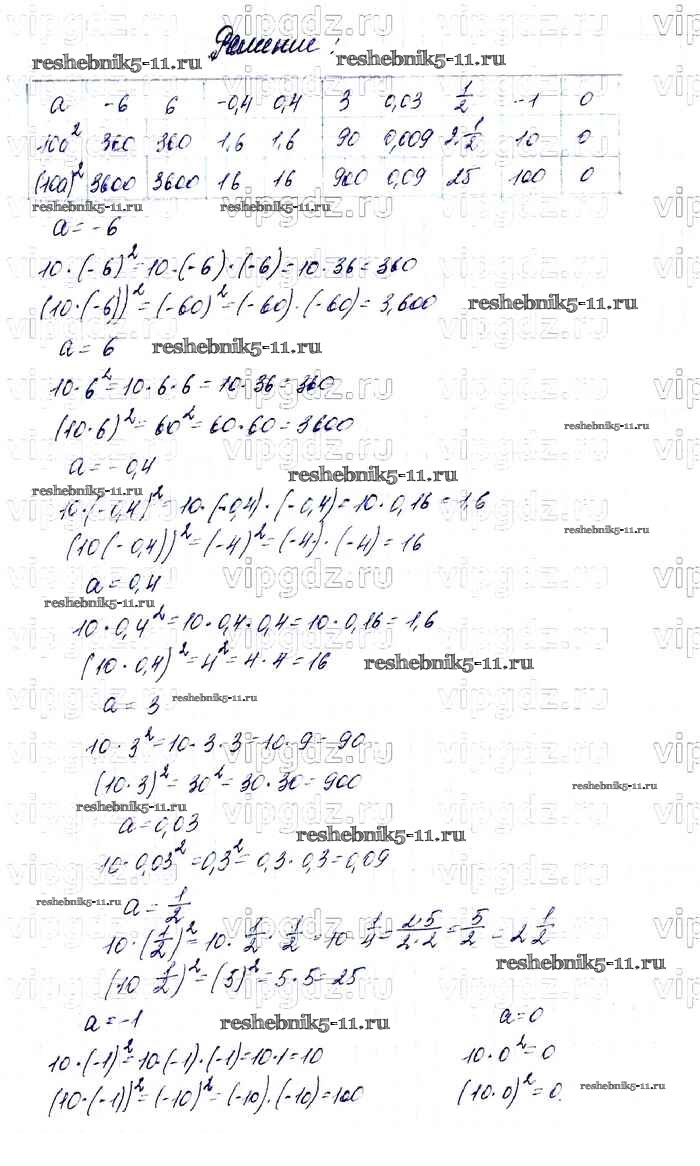 Решение:
a -6 6 -0,4 0,4 3 0,03 1/2 -1 0
10a² 360 360 1,6 1,6 90 0,009 2·1/2 10 0
(10a)² 3600 3600 16 16 900 0,09 25 100 0
a = -6
10·(-6)²=10·(-6)·(-6)=10·36=360
(10·(-6))²=(-60)²=(-60)·(-60)=3,600
a = 6
10·6²=10·6·6=10·36=360
(10·6)²=60²=60·60=3600
a = -0,4
10·(-0,4)²=10·(-0,4)·(-0,4)=10·0,16=1,6
(10(-0,4))²=(-4)²=(-4)·(-4)=16
a = 0,4
10·0,4²=10·0,4·0,4=10·0,16=1,6
(10·0,4)²=4²=4·4=16
a = 3
10·3²=10·3·3=10·9=90
(10·3)²=30²=30·30=900
a=0,03
10·0,03²=0,3²=0,3·0,3=0,09
a = 1/2
10·(1/2)²=10·1/2·1/2=10·1/4=2·5/2·2=5/2=2 1/2
(10 1/2)²=(5)²=5·5=25
a=-1
10·(-1)²=10(-1)·(-1)=10·1=10
(10·(-1))²=(-10)²=(-10)·(-10)=100
a=0
10·0²=0
(10·0)²=0
reshebnik5-11.ru
vipgdz.ru